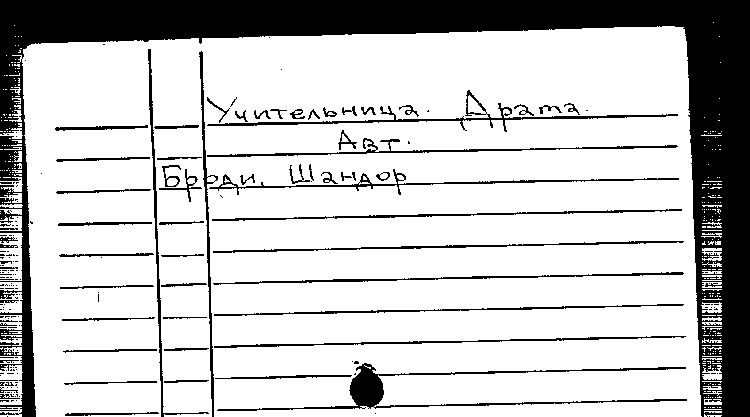 Учительница. Драта.
Авт.
Броди, Шандор